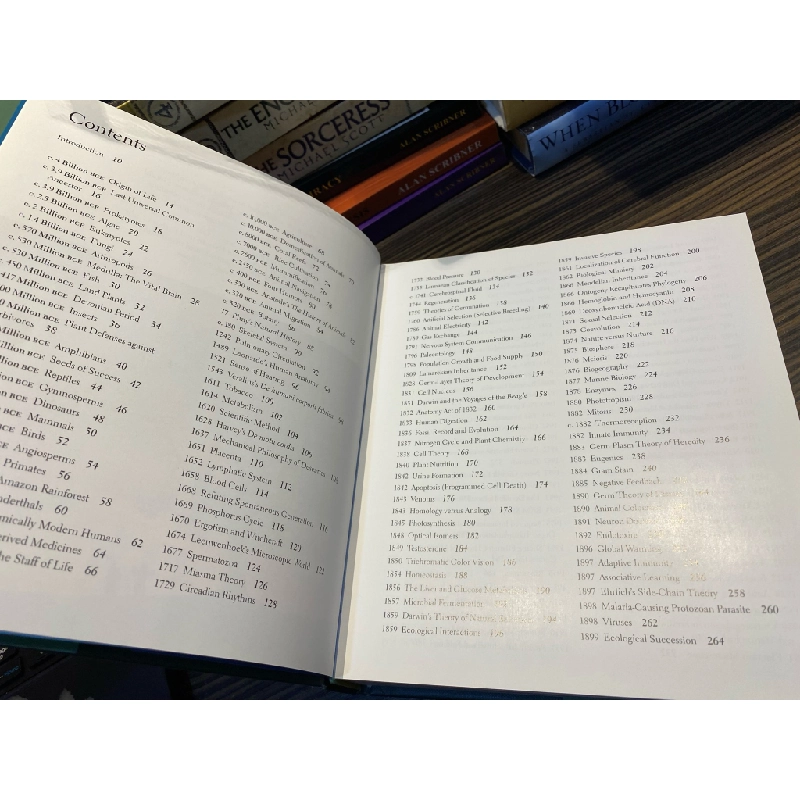 THE EN
MICHAEL
THE SORCERESS
MICHAEL SCOTT
ALAN SCRIBNER
RACY
ALAN SCRIBNER
WHEN BL
Contents
Introduction 10
c. 4 Billion BCE Origin of Life 14
c. 3.9 Billion BCE Last Universal Common
Ancestor 16
c. 3.9 Billion BCE Prokaryotes 18
c. 2.5 Billion BCE Algae 20
c. 2 Billion BCE Eukaryotes 22
c. 1.4 Billion BCE Fungi 24
c. 570 Million BCE Arthropods 26
c. 530 Million BCE Medulla: The Vital Brain 28
c. 530 Million BCE Fish 30
c. 450 Million BCE Land Plants 32
417 Million BCE Devonian Period 34
400 Million BCE Insects 36
Million BCE Plant Defenses against
bivores 38
Million BCE Amphibians 40
Million BCE Seeds of Success 42
BCE Reptiles 44
BCE Gymnosperms 46
BCE Dinosaurs 48
BCE Mammals 50
BCE Birds 52
Angiosperms 54
Primates 56
Amazon Rainforest 58
nderthals 60
mically Modern Humans 62
erived Medicines 64
he Staff of Life 66
Agriculture 68
Domestication of Animals 70
Coral Reefs 72
Rice Cultivation 74
Mummification 76
Animal Navigation 78
Four Humors 80
Aristotle's The History of Animals 82
Animal Migration 84
77 Pliny's Natural History 88
c. 180 Skeletal System 90
1242 Pulmonary Circulation 92
1489 Leonardo's Human Anatomy 94
1521 Sense of Hearing 96
1543 Vesalius's De humani corporis fabrica 98
1611 Tobacco 100
1614 Metabolism 102
1620 Scientific Method 104
1628 Harvey's De motu cordis 106
1637 Mechanical Philosophy of Descartes 108
1651 Placenta 110
1652 Lymphatic System 112
1658 Blood Cells 114
1668 Refuting Spontaneous Generation 116
1669 Phosphorus Cycle 118
1670 Ergotism and Witchcraft 120
1674 Leeuwenhoek's Microscopic World 122
1677 Spermatozoa 124
1717 Miasma Theory 126
1729 Circadian Rhythms 128
1733 Blood Pressure 130
1735 Linnaean Classification of Species 132
c. 1741 Cerebrospinal Fluid 134
1744 Regeneration 136
1759 Theories of Germination 138
1760 Artificial Selection (Selective Breeding) 140
1786 Animal Electricity 142
1789 Gas Exchange 144
1791 Nervous System Communication 146
1796 Paleontology 148
1798 Population Growth and Food Supply 150
1809 Lamarckian Inheritance 152
1828 Germ-Layer Theory of Development 154
1831 Cell Nucleus 156
1831 Darwin and the Voyages of the Beagle 158
1832 Anatomy Act of 1832 160
1833 Human Digestion 162
1836 Fossil Record and Evolution 164
1837 Nitrogen Cycle and Plant Chemistry 166
1838 Cell Theory 168
1840 Plant Nutrition 170
1842 Urine Formation 172
1842 Apoptosis (Programmed Cell Death) 174
1843 Venoms 176
1843 Homology versus Analogy 178
1845 Photosynthesis 180
1848 Optical Isomers 182
1849 Testosterone 184
1850 Trichromatic Color Vision 186
1854 Homeostasis 188
1856 The Liver and Glucose Metabolism 190
1857 Microbial Fermentation
1859 Darwin's Theory of Natural Selection 194
1859 Ecological Interactions 196
1859 Invasive Species 198
1861 Localization of Cerebral Function 200
1862 Biological Mimicry 202
1866 Mendelian Inheritance 204
1866 Ontogeny Recapitulates Phylogeny 206
1866 Hemoglobin and Hemocyanin 208
1869 Deoxyribonucleic Acid (DNA) 210
1871 Sexual Selection 212
1873 Coevolution 214
1874 Nature versus Nurture 216
1875 Biosphere 218
1876 Meiosis 220
1876 Biogeography 222
1877 Marine Biology 224
1878 Enzymes 226
1880 Phototropism 228
1882 Mitosis 230
c. 1882 Thermoreception 232
1882 Innate Immunity 234
1883 Germ Plasm Theory of Heredity 236
1883 Eugenics 238
1884 Gram Stain 240
1885 Negative Feedback
1890 Germ Theory of
1890 Animal Color
1891 Neuron Do
1892 Endotoxins
1896 Global Warming
1897 Adaptive Immunity
1897 Associative Learning 256
1897 Ehrlich's Side-Chain Theory 258
1898 Malaria-Causing Protozoan Parasite 260
1898 Viruses 262
1899 Ecological Succession 264